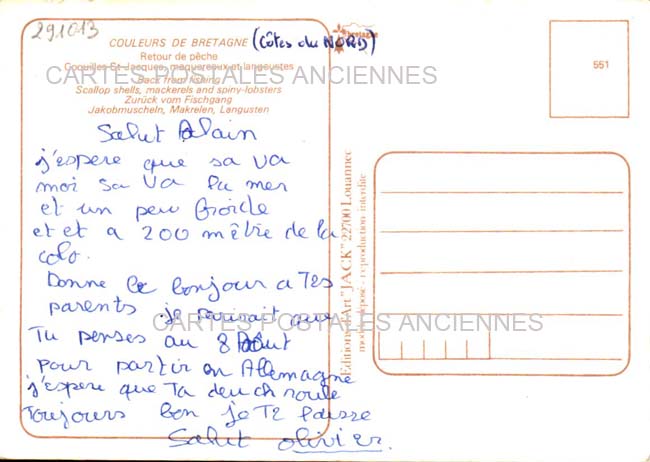 291013
COULEURS DE BRETAGNE (Côtes du NORD)
bretagne
Retour de pêche
Coquilles St-Jacques, maquereaux et langoustes
Back from fishing
Scallop shells, mackerels and spiny-lobsters
Zurück vom Fischgang
Jakobmuscheln, Makrelen, Langusten
CARTES POSTALES ANCIENNES
551
Salut Alain
j'espere que sa va
moi sa va la mer
et un peu froide
et et a 200 mêtre de la
colo.
Donne le bonjour a Tes
parents. je
Tu penses au 8 Aout
pour partir en Allemagne
j'espere que Ta deuch roule
Toujours bon je Te laisse
Salut olivier.
CARTES POSTALES ANCIENNES
Editions d'Art "JACK" 22700 Louannec
modèle déposé - reproduction interdite